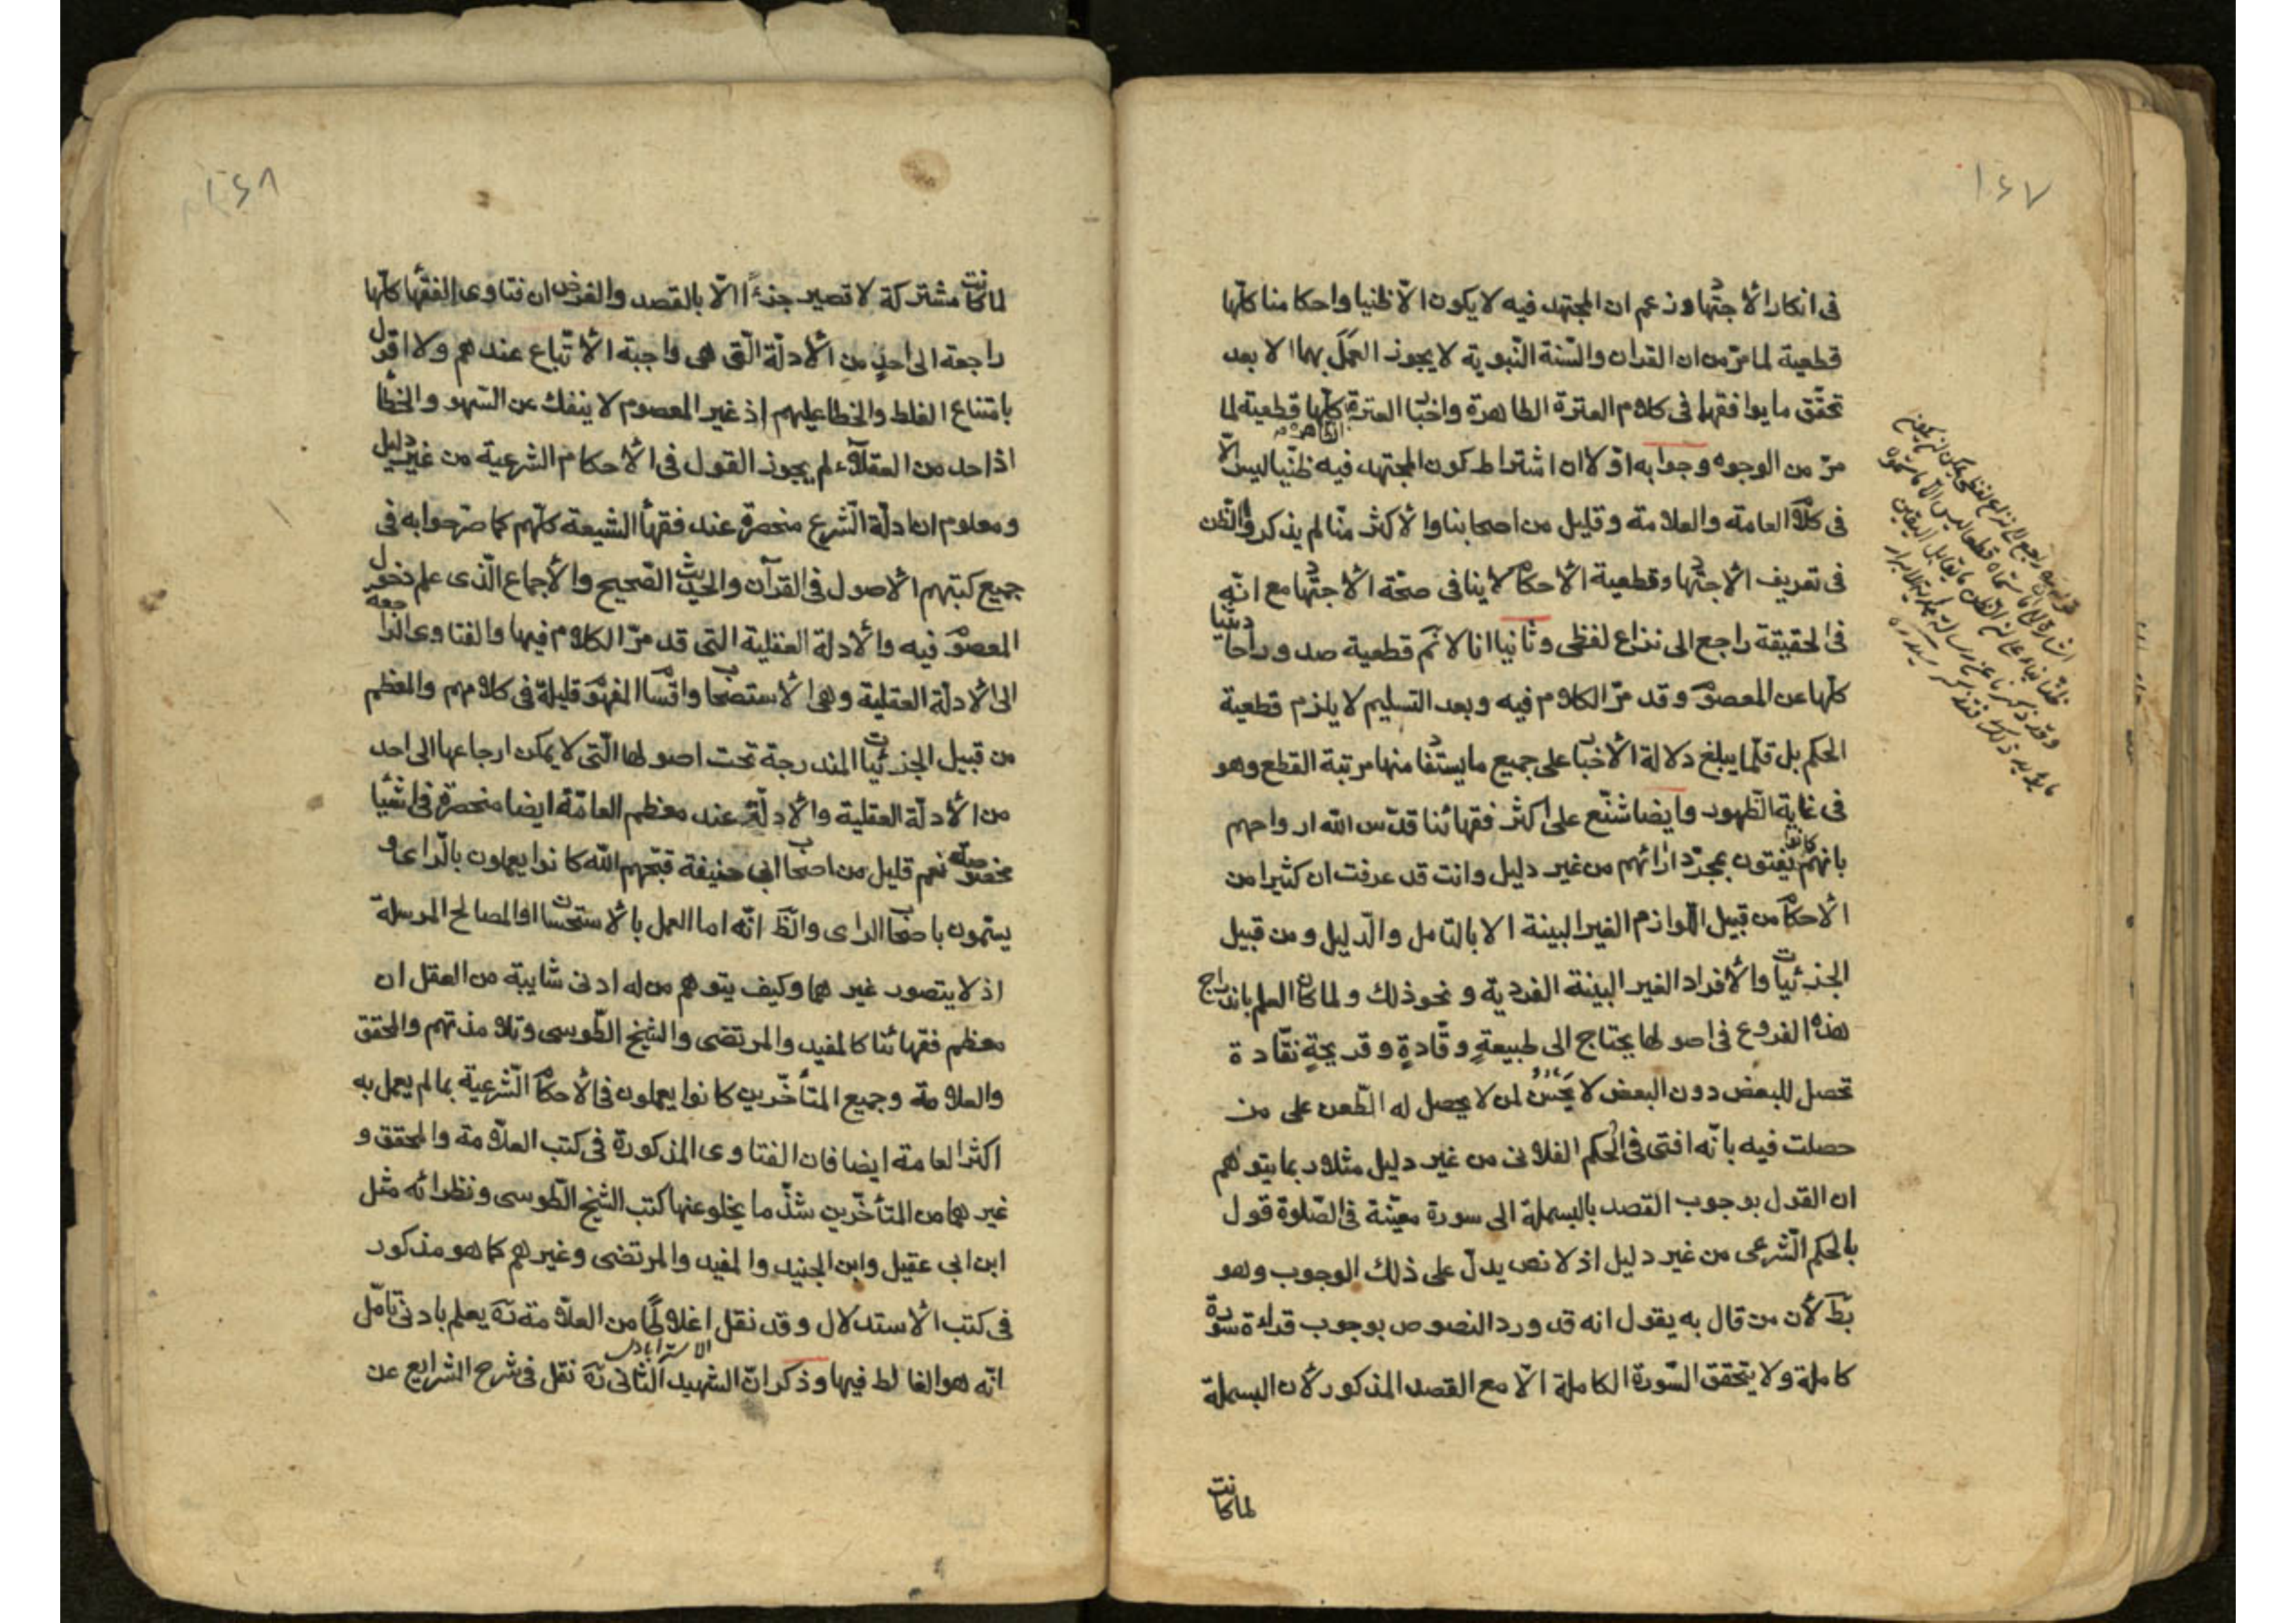 ١٤٧
فى انكار الأجتهاد وزعم ان المجتهد فيه لا يكون الّا ظنيا واحكامنا كلّها
قطعية لما مرّ من ان القران والسّنة النّبوية لا يجوز العمل بهما الا بعد
تحقّق ما يوافقهما فى كلام العترة الطاهرة واخبار العترة الطاهرة كلّها قطعية لما
مرّ من الوجوه وجوابه اوّلا ان اشتراط كون المجتهد فيه ظنّيا ليس الّا
فى كلام العامة والعلامة وقليل من اصحابنا والأكثر منّا لم يذكروا الظن
فى تعريف الاجتهاد وقطعية الأحكام لا ينافى صحّة الأجتهاد مع انّه
فى الحقيقة راجع الى نزاع لفظى وثانيا انا لا نم قطعية صدور احاديثنا
كلّها عن المعصوم وقد مرّ الكلام فيه وبعد التسليم لا يلزم قطعية
الحكم بل قلّما يبلغ دلالة الأخبار على جميع ما يستفاد منها مرتبة القطع وهو
فى غاية الظّهور وايضا شنّع على اكثر فقهائنا قدّس الله ارواحهم
بانهم كانوا يفتون بمجرّد ارائهم من غير دليل وانت قد عرفت ان كثيرا من
الأحكام من قبيل اللّوازم الغير البينة الا بالتامل والدّليل ومن قبيل
الجزئيات والأفراد الغير البينة الفردية ونحو ذلك ولما كان العلم باندراج
هذه الفروع فى اصولها يحتاج الى طبيعةٍ وقّادةٍ وقريحةٍ نقّادة
تحصل للبعض دون البعض لا يحسن لمن لا يحصل له الطّعن على من
حصلت فيه بانّه افتى فى الحكم الفلانى من غير دليل مثلا ربما يتوهم
ان القول بوجوب القصد بالبسملة الى سورة معيّنة فى الصّلوة قول
بالحكم الشّرعى من غير دليل اذ لا نص يدلّ على ذلك الوجوب وهو
بطّ لأن من قال به يقول انه قد ورد النصوص بوجوب قراءة سورة
كاملة ولا يتحقق السّورة الكاملة الّا مع القصد المذكور لأن البسملة
لما كانت
١٤٨
لما كانت مشتركة لا تصير جزءًا الّا بالقصد والغرض ان فتاوى الفقهأ كلّها
راجعة الى احدٍ من الأدلّة الّتى هى واجبة الأتّباع عندهم ولا اقول
بامتناع الغلط والخطا عليهم اذ غير المعصوم لا ينفك عن السّهو والخطأ
اذ احد من العقلآء لم يجوز القول فى الأحكام الشرعية من غير دليل
ومعلوم ان ادلّة الشّرع منحصرة عند فقهأ الشيعة كلّهم كما صرّحوا به فى
جميع كتبهم الاصول فى القرآن والحديث الصّحيح والأجماع الّذى علم دخول
المعصوم فيه والأدلة العقلية التى قد مرّ الكلام فيها والفتاوى الراجعة
الى الأدلّة العقلية وهى الأستصحاب واقسام المفهوم قليلة فى كلامهم والمعظم
من قبيل الجزئيات المندرجة تحت اصولها الّتى لا يمكن ارجاعها الى احد
من الأدلّة العقلية والأدلّة عند معظم العامّة ايضا منحصرة فى اشيا
مخصوصة نعم قليل من اصحاب ابى حنيفة قبّحهم الله كانوا يعملون بالرّاى و
يسّمون باصحاب الراى والظّ انّه اما العمل بالأستحسان او المصالح المرسلة
اذ لا يتصور غيرهما وكيف يتوهم من له ادنى شايبة من العقل ان
معظم فقهائنا كالمفيد والمرتضى والشيخ الطّوسى وتلامذتهم والمحقق
والعلامة وجميع المتأخّرين كانوا يعملون فى الأحكام الشّرعية بما لم يعمل به
اكثر العامة ايضا فان الفتاوى المذكورة فى كتب العلّامة والمحقق و
غيرهما من المتأخّرين شذّ ما يخلو عنها كتب الشيخ الطّوسى ونظرائه مثل
ابن ابى عقيل وابن الجنيد والمفيد والمرتضى وغيرهم كما هو مذكور
فى كتب الأستدلال وقد نقل اغلاطًا من العلّامة ره يعلم بادنى تامّل
انّه هو الغالط فيها وذكر الاسترابادى انّ الشهيد الثّانى ره نقل فى شرح الشرايع عن